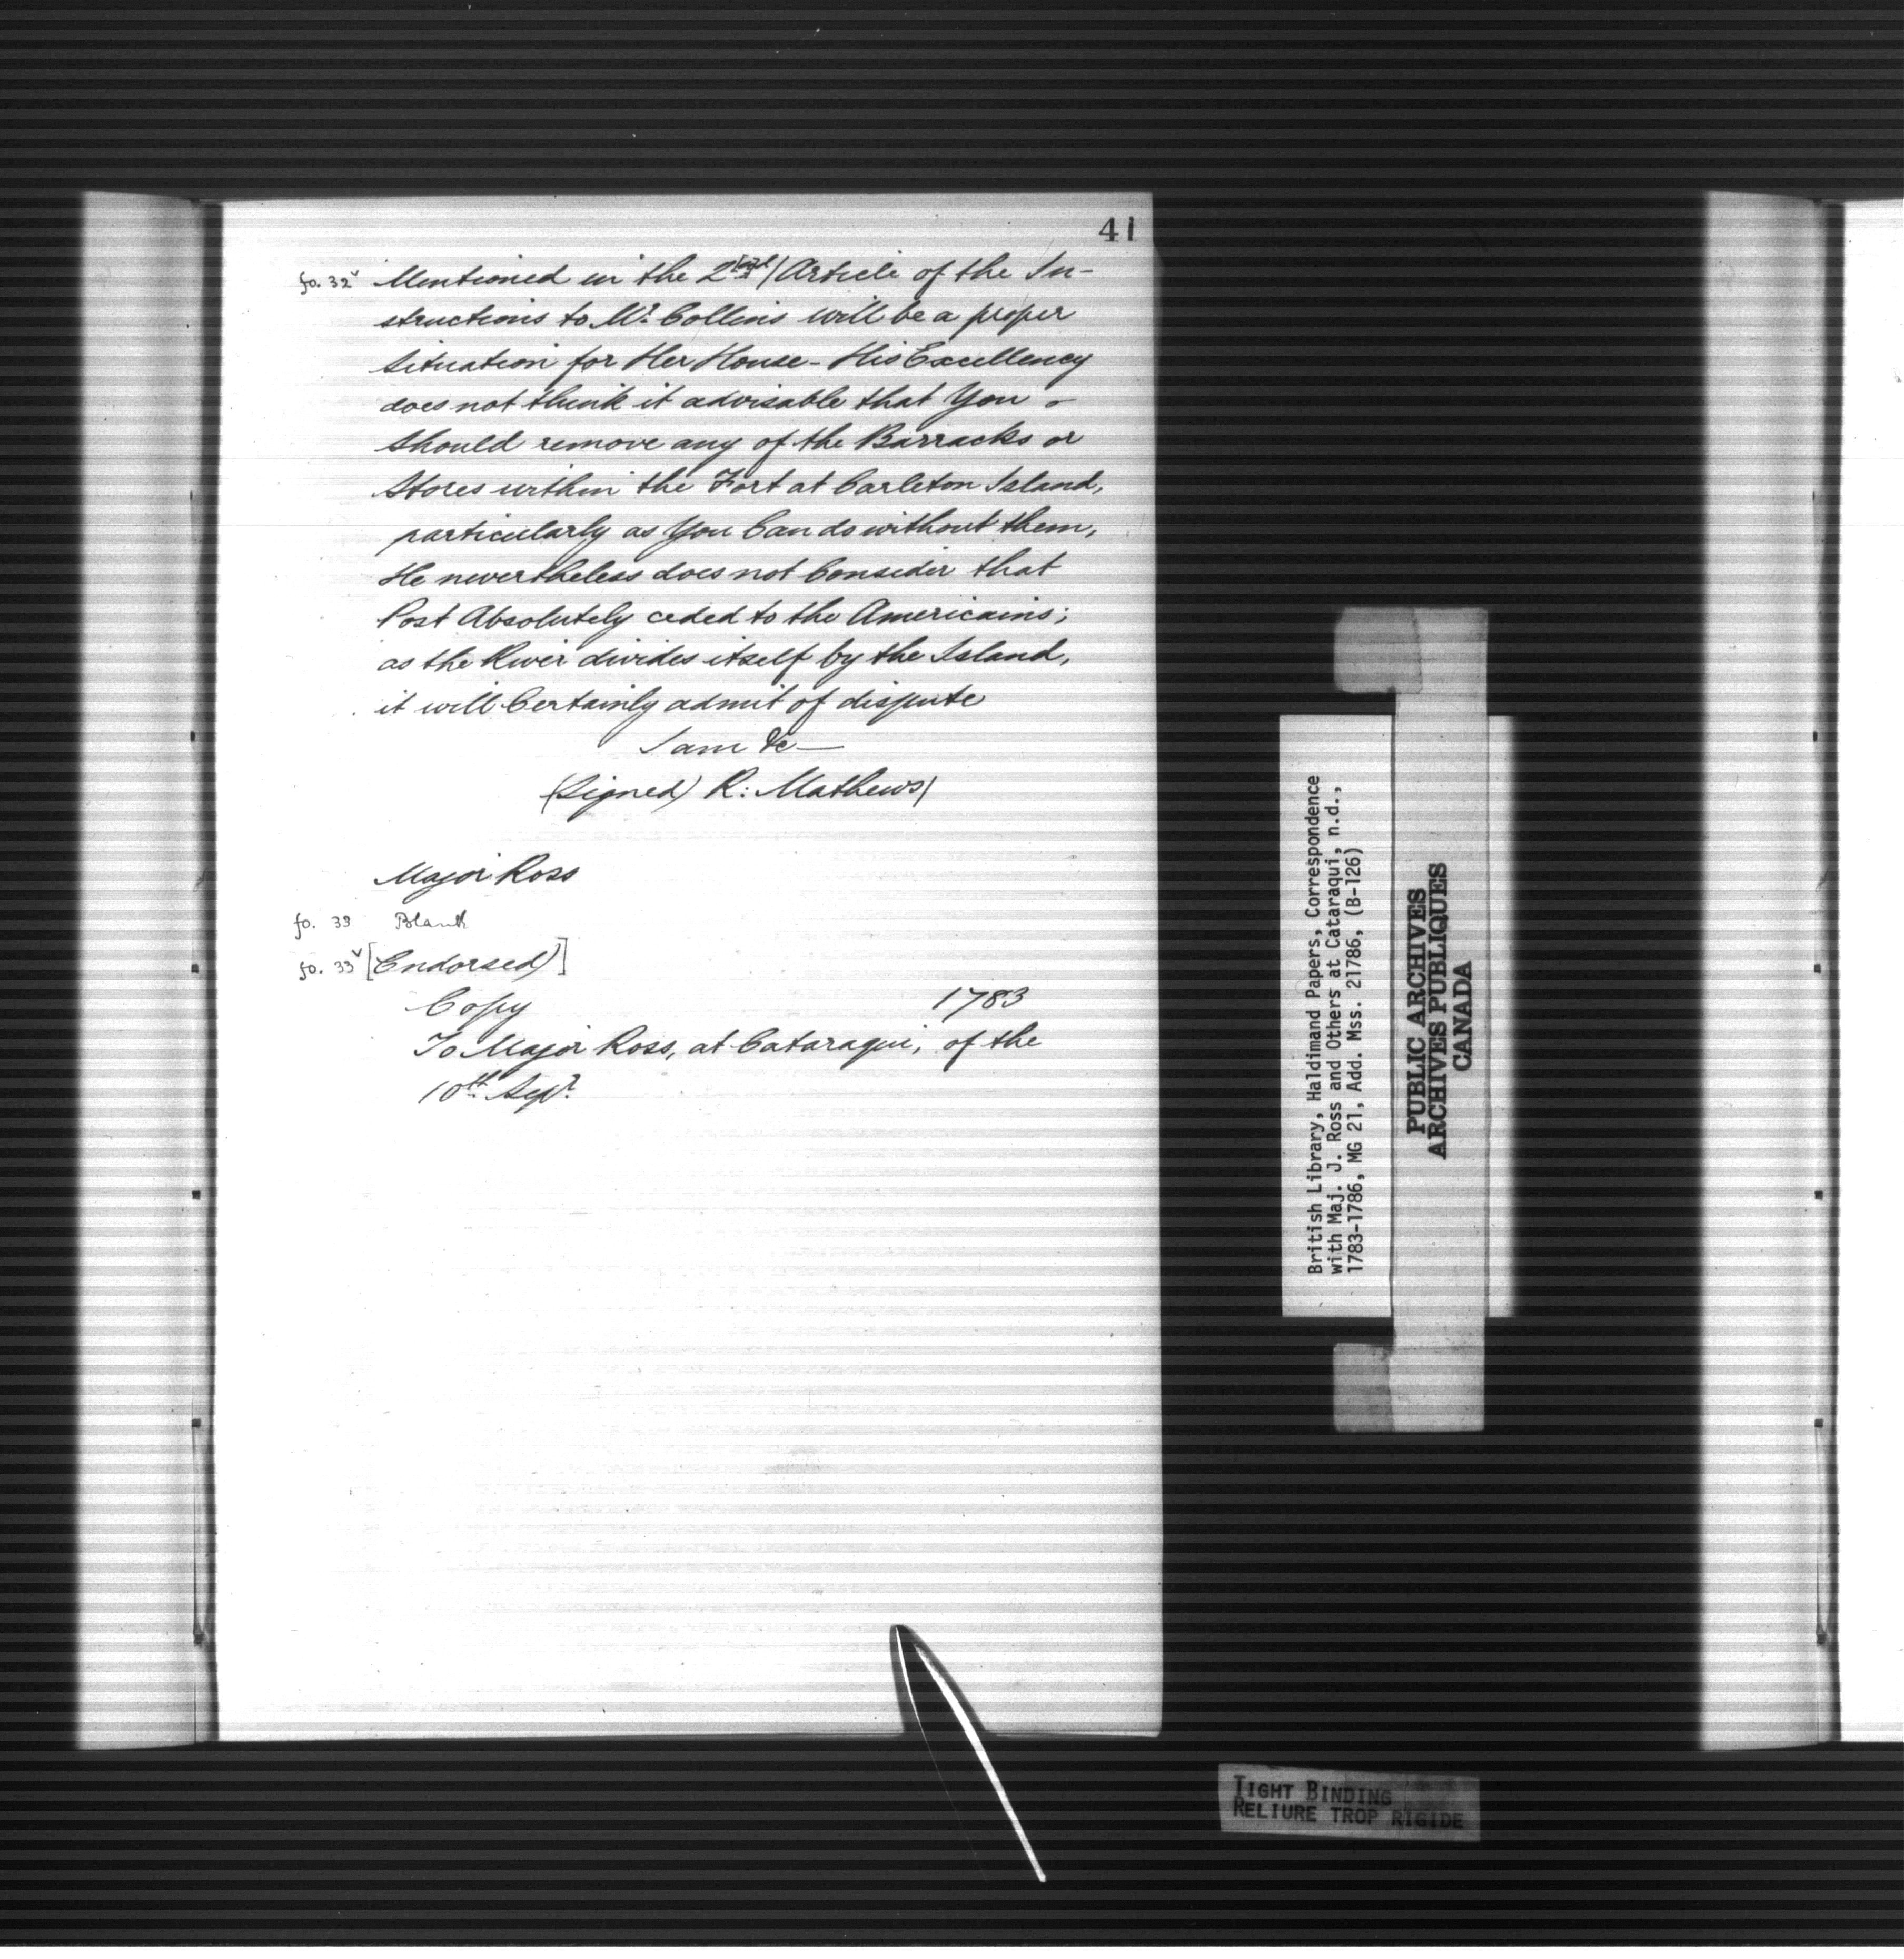 41
fo. 32v Mentioned in the 2nd/ Article of the In-
structions to Mr. Collins will be a proper
Situation for Her House - His Excellency
does not think it advisable that You -
Should remove any of the Barracks or
Stores within the Fort at Carleton Island,
particularly as You Can do without them,
He nevertheless does not Consider that
Post Absolutely ceded to the Americains;
as the River divides itself by the Island,
it will Certainly admit of dispute
I am &c —
(Signed) R: Mathews/
Major Ross
fo. 33 Blank
fo. 33v [Endorsed)]
Copy 1783
To Major Ross, at Cataraqui, of the
10th. Sepr.
British Library, Haldimand Papers, Correspondence
with Maj. J. Ross and Others at Cataraqui, n.d.,
1783-1786, MG 21, Add. Mss. 21786, (B-126)
PUBLIC ARCHIVES
ARCHIVES PUBLIQUES
CANADA
TIGHT BINDING
RELIURE TROP RIGIDE